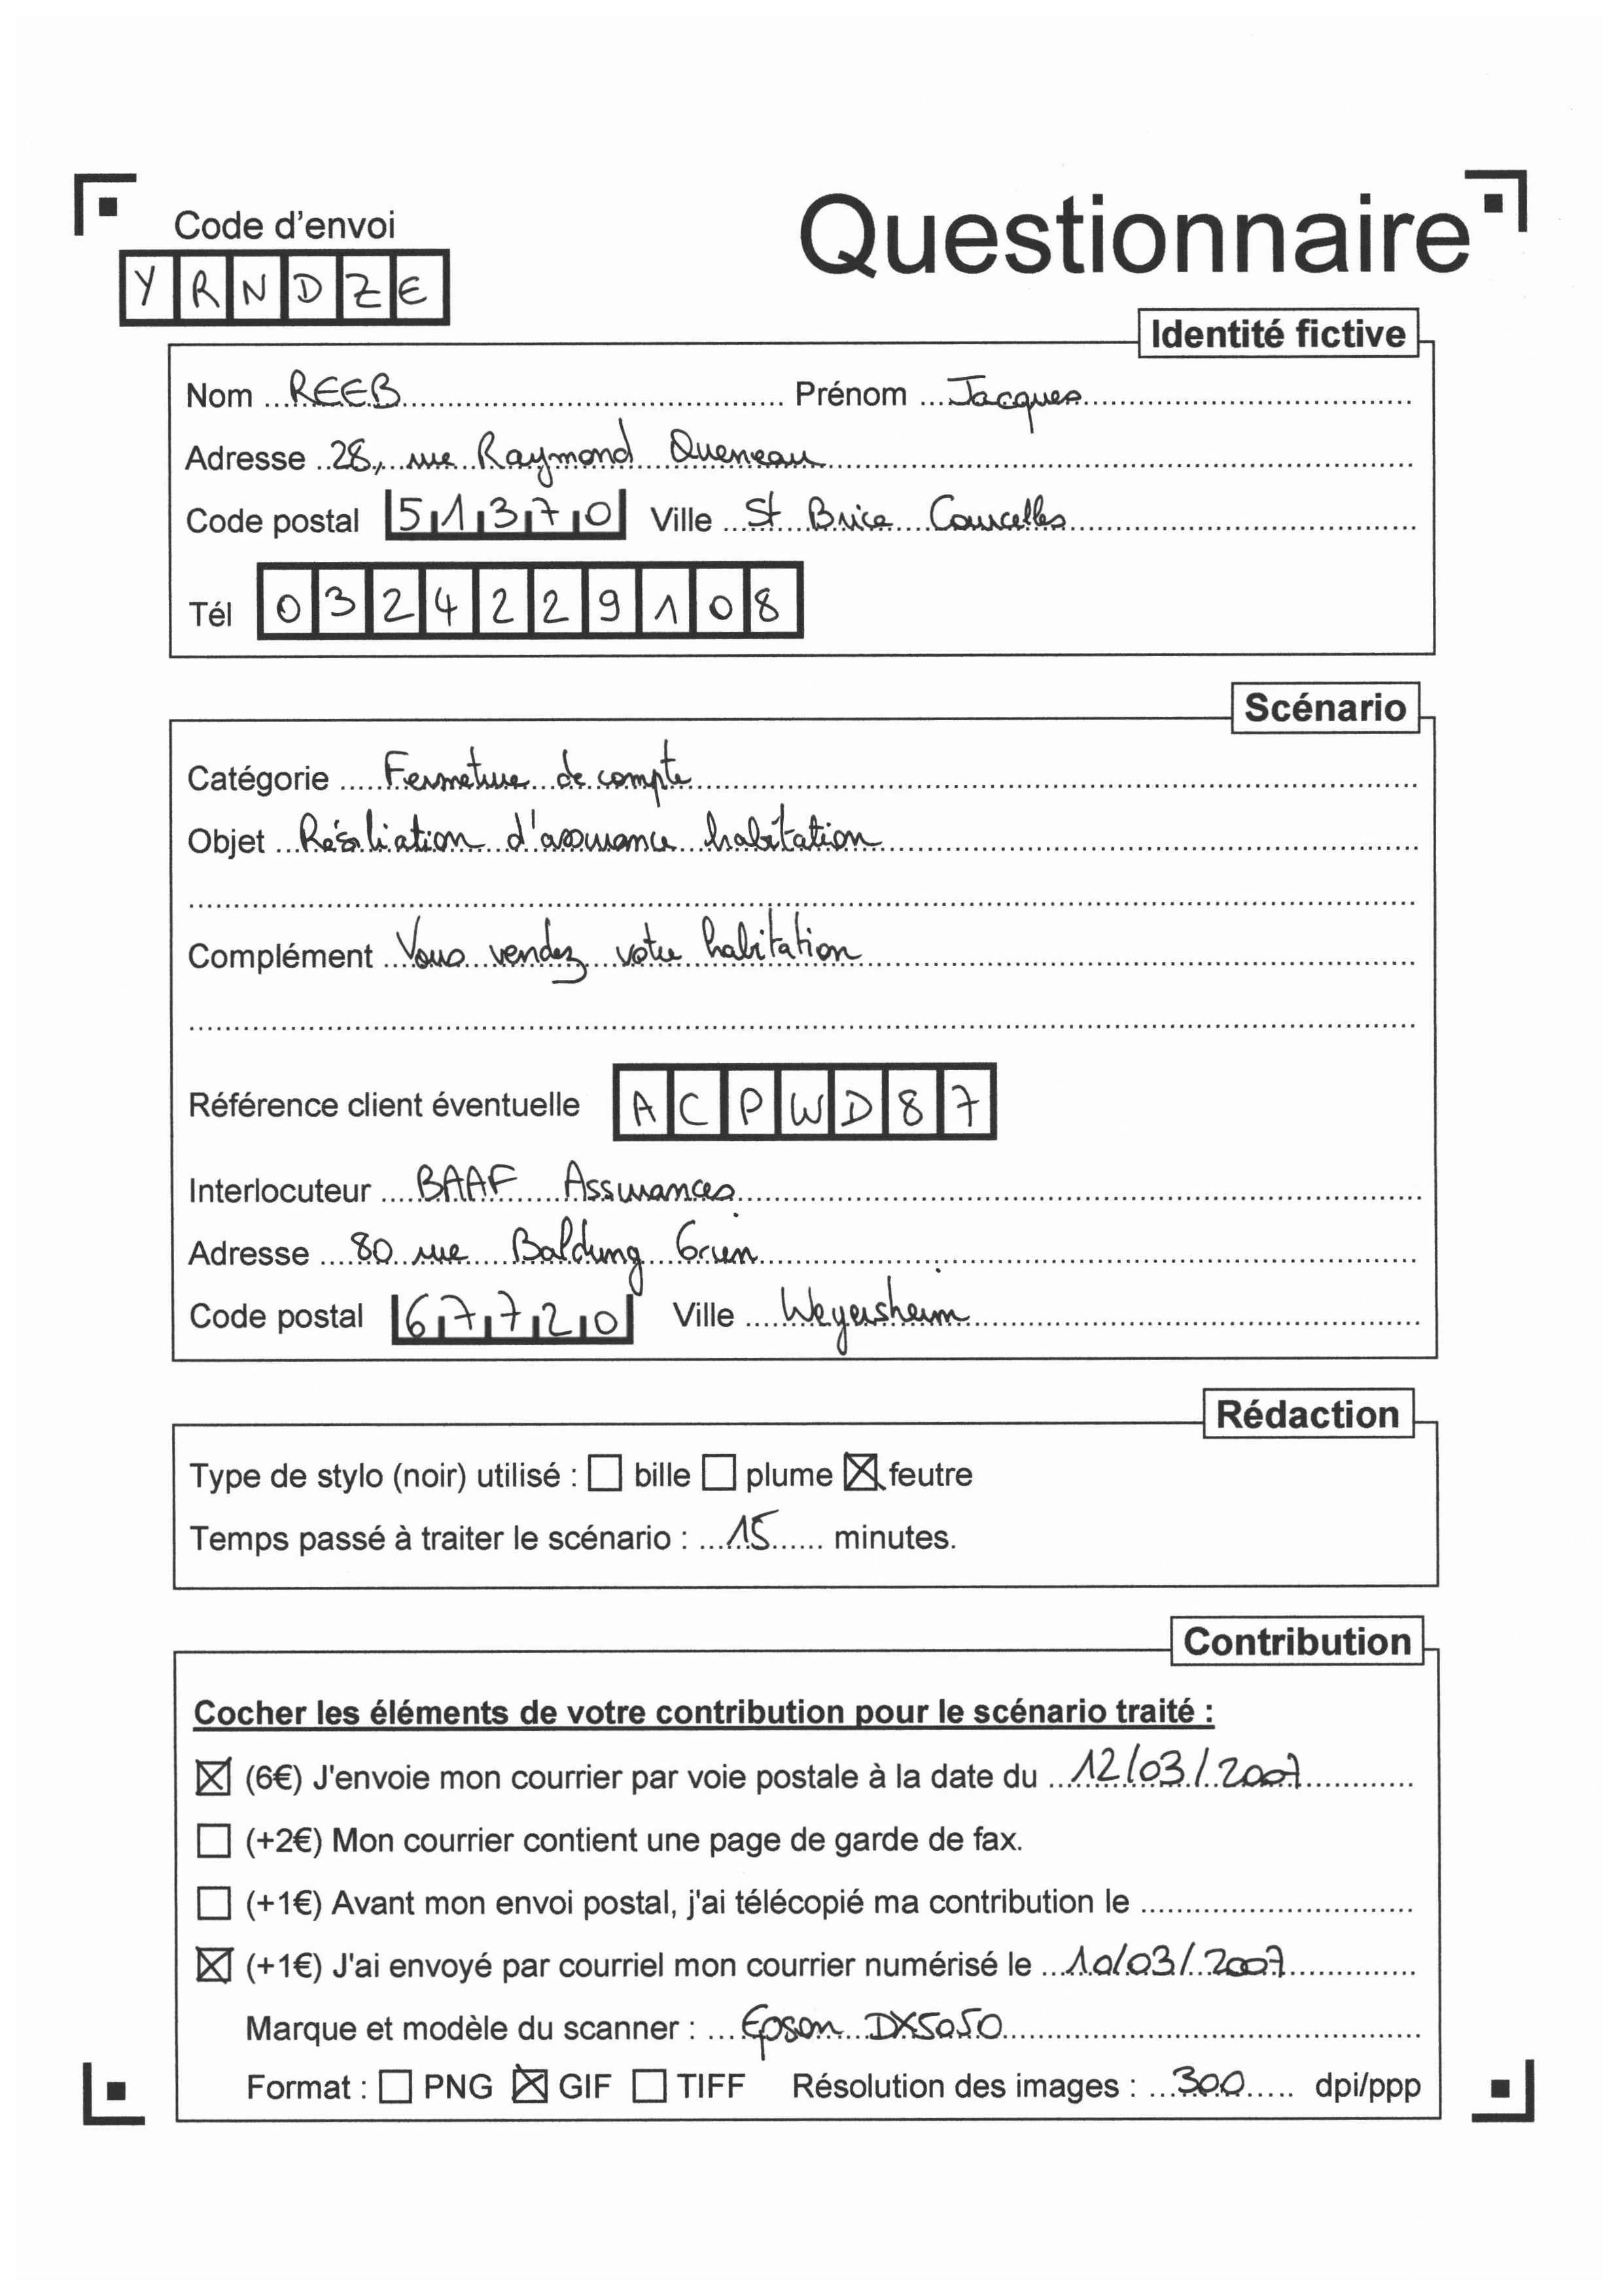 Questionnaire
Code d'envoi
YRNDZE
Identité fictive
Nom REEB Prénom Jacques
Adresse 28, rue Raymond Queneau
Code postal 51370 Ville St Brice Courcelles
Tél 0324229108
Scénario
Catégorie Fermeture de compte
Objet Résiliation d'assurance habitation
Complément Vous vendez votre habitation
Référence client éventuelle ACPWD87
Interlocuteur BAAF Assurances
Adresse 80 rue Baldung Grien
Code postal 67720 Ville Weyersheim
Rédaction
Type de stylo (noir) utilisé : ☐ bille ☐ plume ☒ feutre
Temps passé à traiter le scénario : 15 minutes.
Contribution
Cocher les éléments de votre contribution pour le scénario traité :
☒ (6€) J'envoie mon courrier par voie postale à la date du 12/03/2007
☐ (+2€) Mon courrier contient une page de garde de fax.
☐ (+1€) Avant mon envoi postal, j'ai télécopié ma contribution le
☒ (+1€) J'ai envoyé par courriel mon courrier numérisé le 10/03/2007
Marque et modèle du scanner : Epson DX5050
Format : ☐ PNG ☒ GIF ☐ TIFF Résolution des images : 300 dpi/ppp